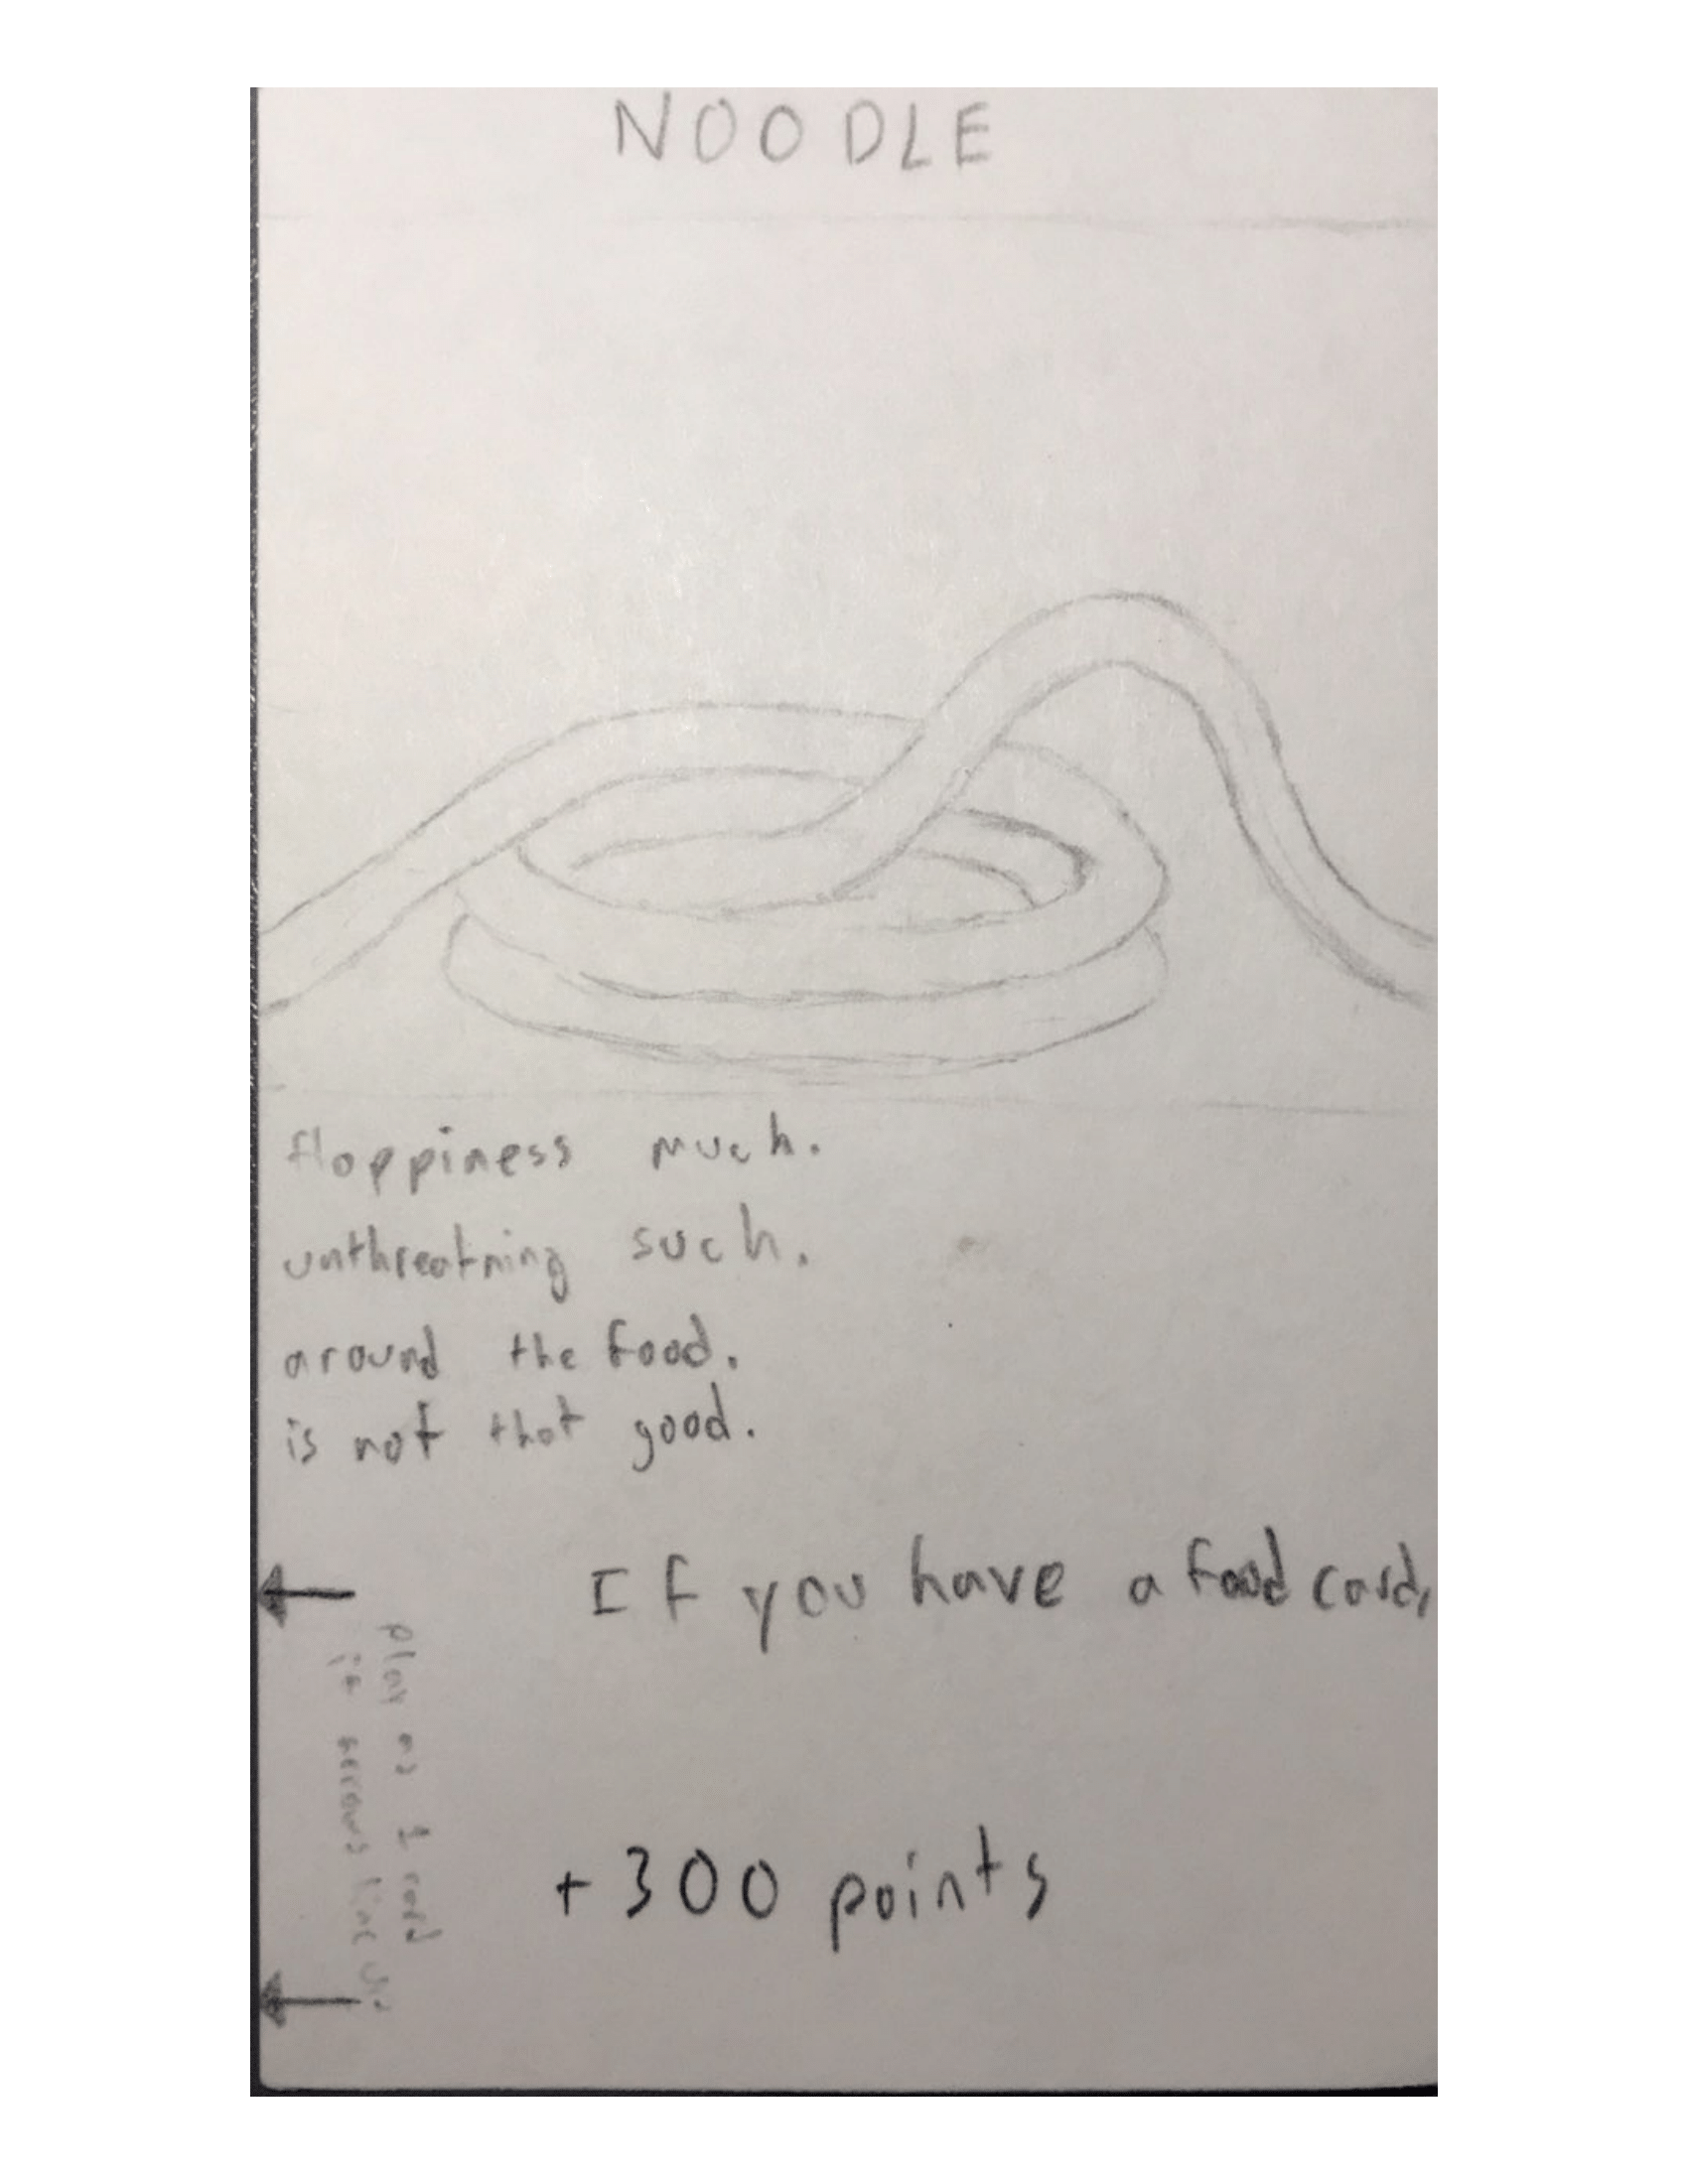 NOODLE
floppiness much.
unthreatning such.
around the food.
is not that good.
If you have a food card,
play as 1 card
if arrows line up
+300 points